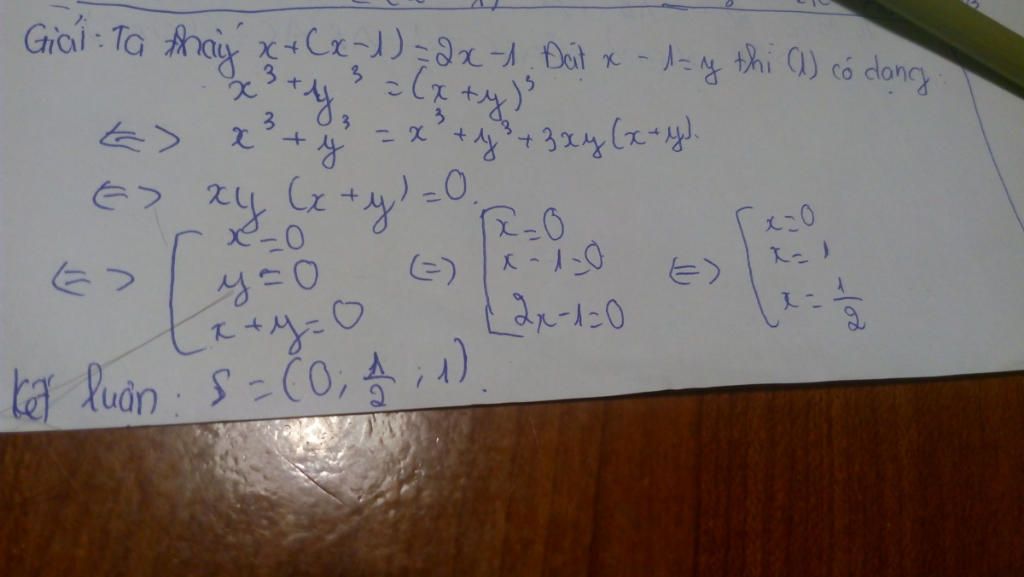 Giải: Ta thấy x+(x-1)=2x-1. Đặt x-1=y thì (1) có dạng.
x³+y³=(x+y)³
<=> x³+y³=x³+y³+3xy(x+y).
<=> xy(x+y)=0.
<=> [x=0 (=) [x=0 <=> [x=0
y=0 x-1=0 x=1
x+y=0 2x-1=0 x=1/2
Kết luận: S=(0; 1/2; 1).